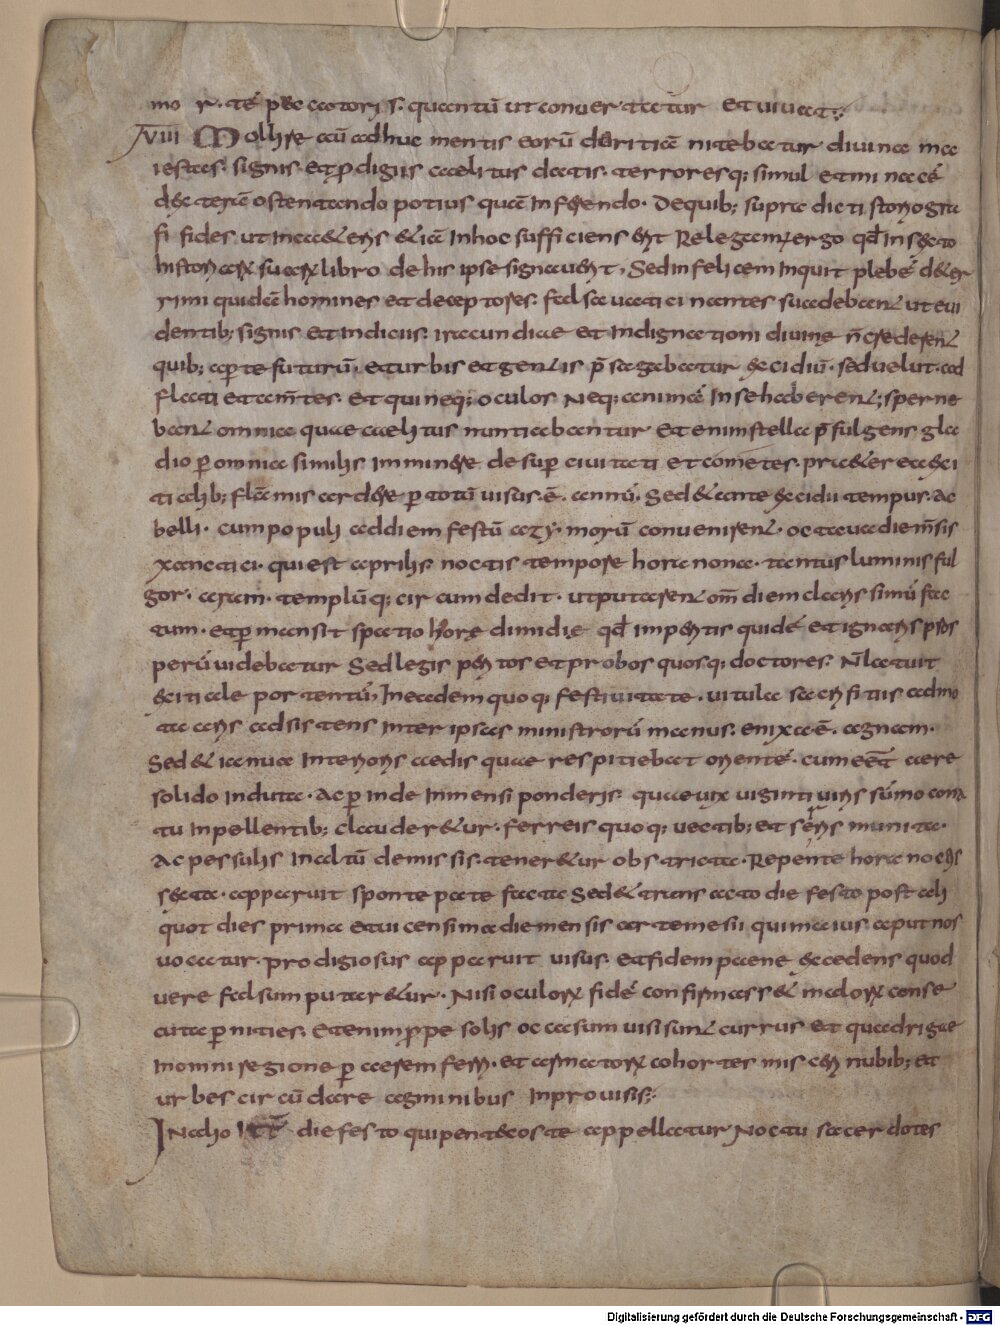 mor té peccatoris quantū ut conuertatur et uiuat
VIII Mollire cū adhuc mentis eorū duritiā nitebatur diuina ma
iestas signis et ꝓdigiis caelitus datis terroresq; simul et minacē
dexteram ostentando potius quā inferendo. De quib; supra dicti storiogra
fi fides ut in ceteris & iā in hoc sufficiens erit Relegam ergo qđ in sexto
historiarꝝ suarꝝ libro de his ipse signauerit, Sed infelicem inquit plebē deter
rimi quidā homines et deceptores. falsa uaticinantes suadebant ut eui
dentib; signis et indiciis iracundiae et indignationi diuinę n̄ crederent
quib; aꝑte futurū et urbis et gentis p̄sagabatur excidiū. sed uelut ad
flati et am̄tes et qui neq; oculos Neq; animā in se haberent; sperne
bant omnia quae caelitus nuntiabantur Etenim stella p̄fulgens gla
dio ꝑ omnia similis imminere desuꝑ ciuitati et cometes. praeterea exi
tialib; flāmis ardere ꝑ totū uisus ē. annū. Sed & ante excidii tempus. Ac
belli. cum populi ad diem festū azymorū conuenirent. octaua die m̄sis
xanctici. qui est aprilis noctis tempore hora nona. tantus luminis ful
gor. aram. templūq; circumdedit. ut putarent om̄ diem clarissimū fac
tum. et ꝑmansit spatio horę dimidię qđ imꝑitis quidē et ignaris pros
perū uidebatur Sed legis peritos et probos quosq; doctores. N̄ latuit
exitiale portentū, In eadem quoq; festiuitate. uitula sacrificiis admo
ta aris adsistens inter ipsas ministrorū manus. enixa ē. agnam.
Sed & ianua interioris aedis quae respitiebat orientē. cum eēt aere
solido induta. Ac ꝑinde inmensi ponderis quae uix uiginti uiris sūmo cona
tu inpellentib; clauderetur. ferreis quoq; uectib; et seris munita.
Ac pessulis in altū demissis teneretur obstricta. Repente hora noctis
sexta. apparuit sponte patefacta Sed & transacto die festo post ali
quot dies prima et uicensima die mensis artemesii qui maius aput nos
uocatur. prodigiosus apparuit uisus. et fidem paene excedens quod
uere falsum putaretur. Nisi oculorꝝ fidē confirmasset malorꝝ conse
cuta ꝑnities. Etenim ꝓpe solis occasum uisi sunt currus et quadrigae
in omni regione ꝑ aerem ferri. et armatorꝝ cohortes misceri nubib; et
urbes circūdare agminibus inprouisis
In alio die festo qui pentecoste appellatur Noctu sacerdotes
Digitalisierung gefördert durch die Deutsche Forschungsgemeinschaft - DFG